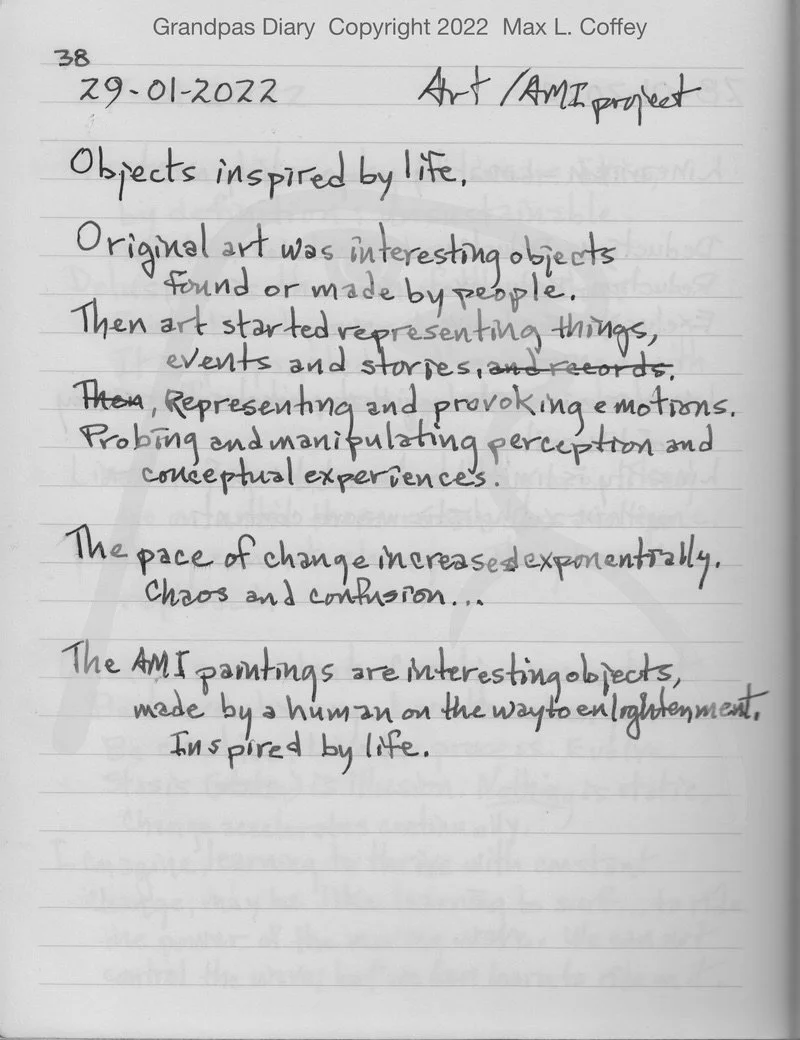 Grandpas Diary Copyright 2022 Max L. Coffey
38
29-01-2022 Art/AMI project
Objects inspired by life.
Original art was interesting objects
found or made by people.
Then art started representing things,
events and stories, and records.
Then, Representing and provoking emotions.
Probing and manipulating perception and
conceptual experiences.
The pace of change increased exponentially.
Chaos and confusion...
The AMI paintings are interesting objects,
made by a human on the way to enlightenment.
Inspired by life.